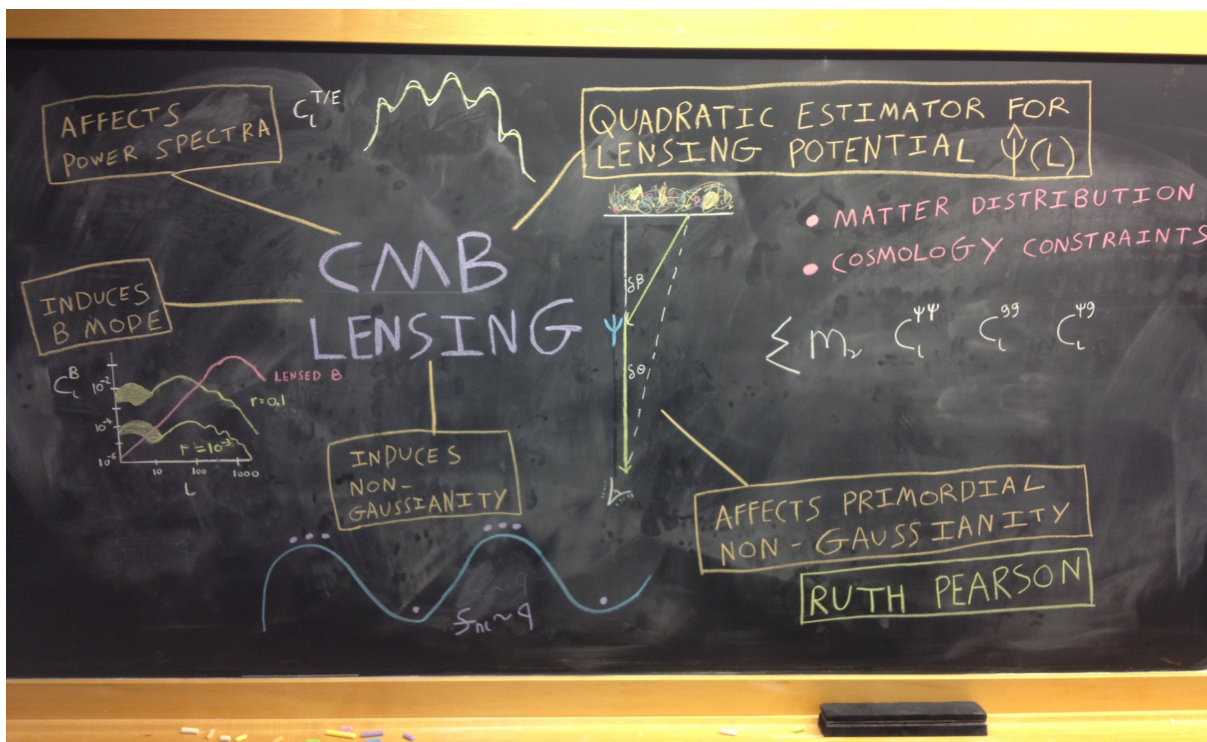 AFFECTS
POWER SPECTRA
C_l^{T/E}
QUADRATIC ESTIMATOR FOR
LENSING POTENTIAL Ψ̂(L)
• MATTER DISTRIBUTION
• COSMOLOGY CONSTRAINTS
CMB
LENSING
INDUCES
B MODE
δβ
Ψ
δθ
Σ m_ν C_l^{ΨΨ} C_l^{gg} C_l^{Ψg}
C_l^B
LENSED B
10^{-2}
r=0.1
10^{-4}
r=10^{-3}
10^{-6}
10 100 1000
L
INDUCES
NON-
GAUSSIANITY
AFFECTS PRIMORDIAL
NON-GAUSSIANITY
RUTH PEARSON
f_{nl}~9